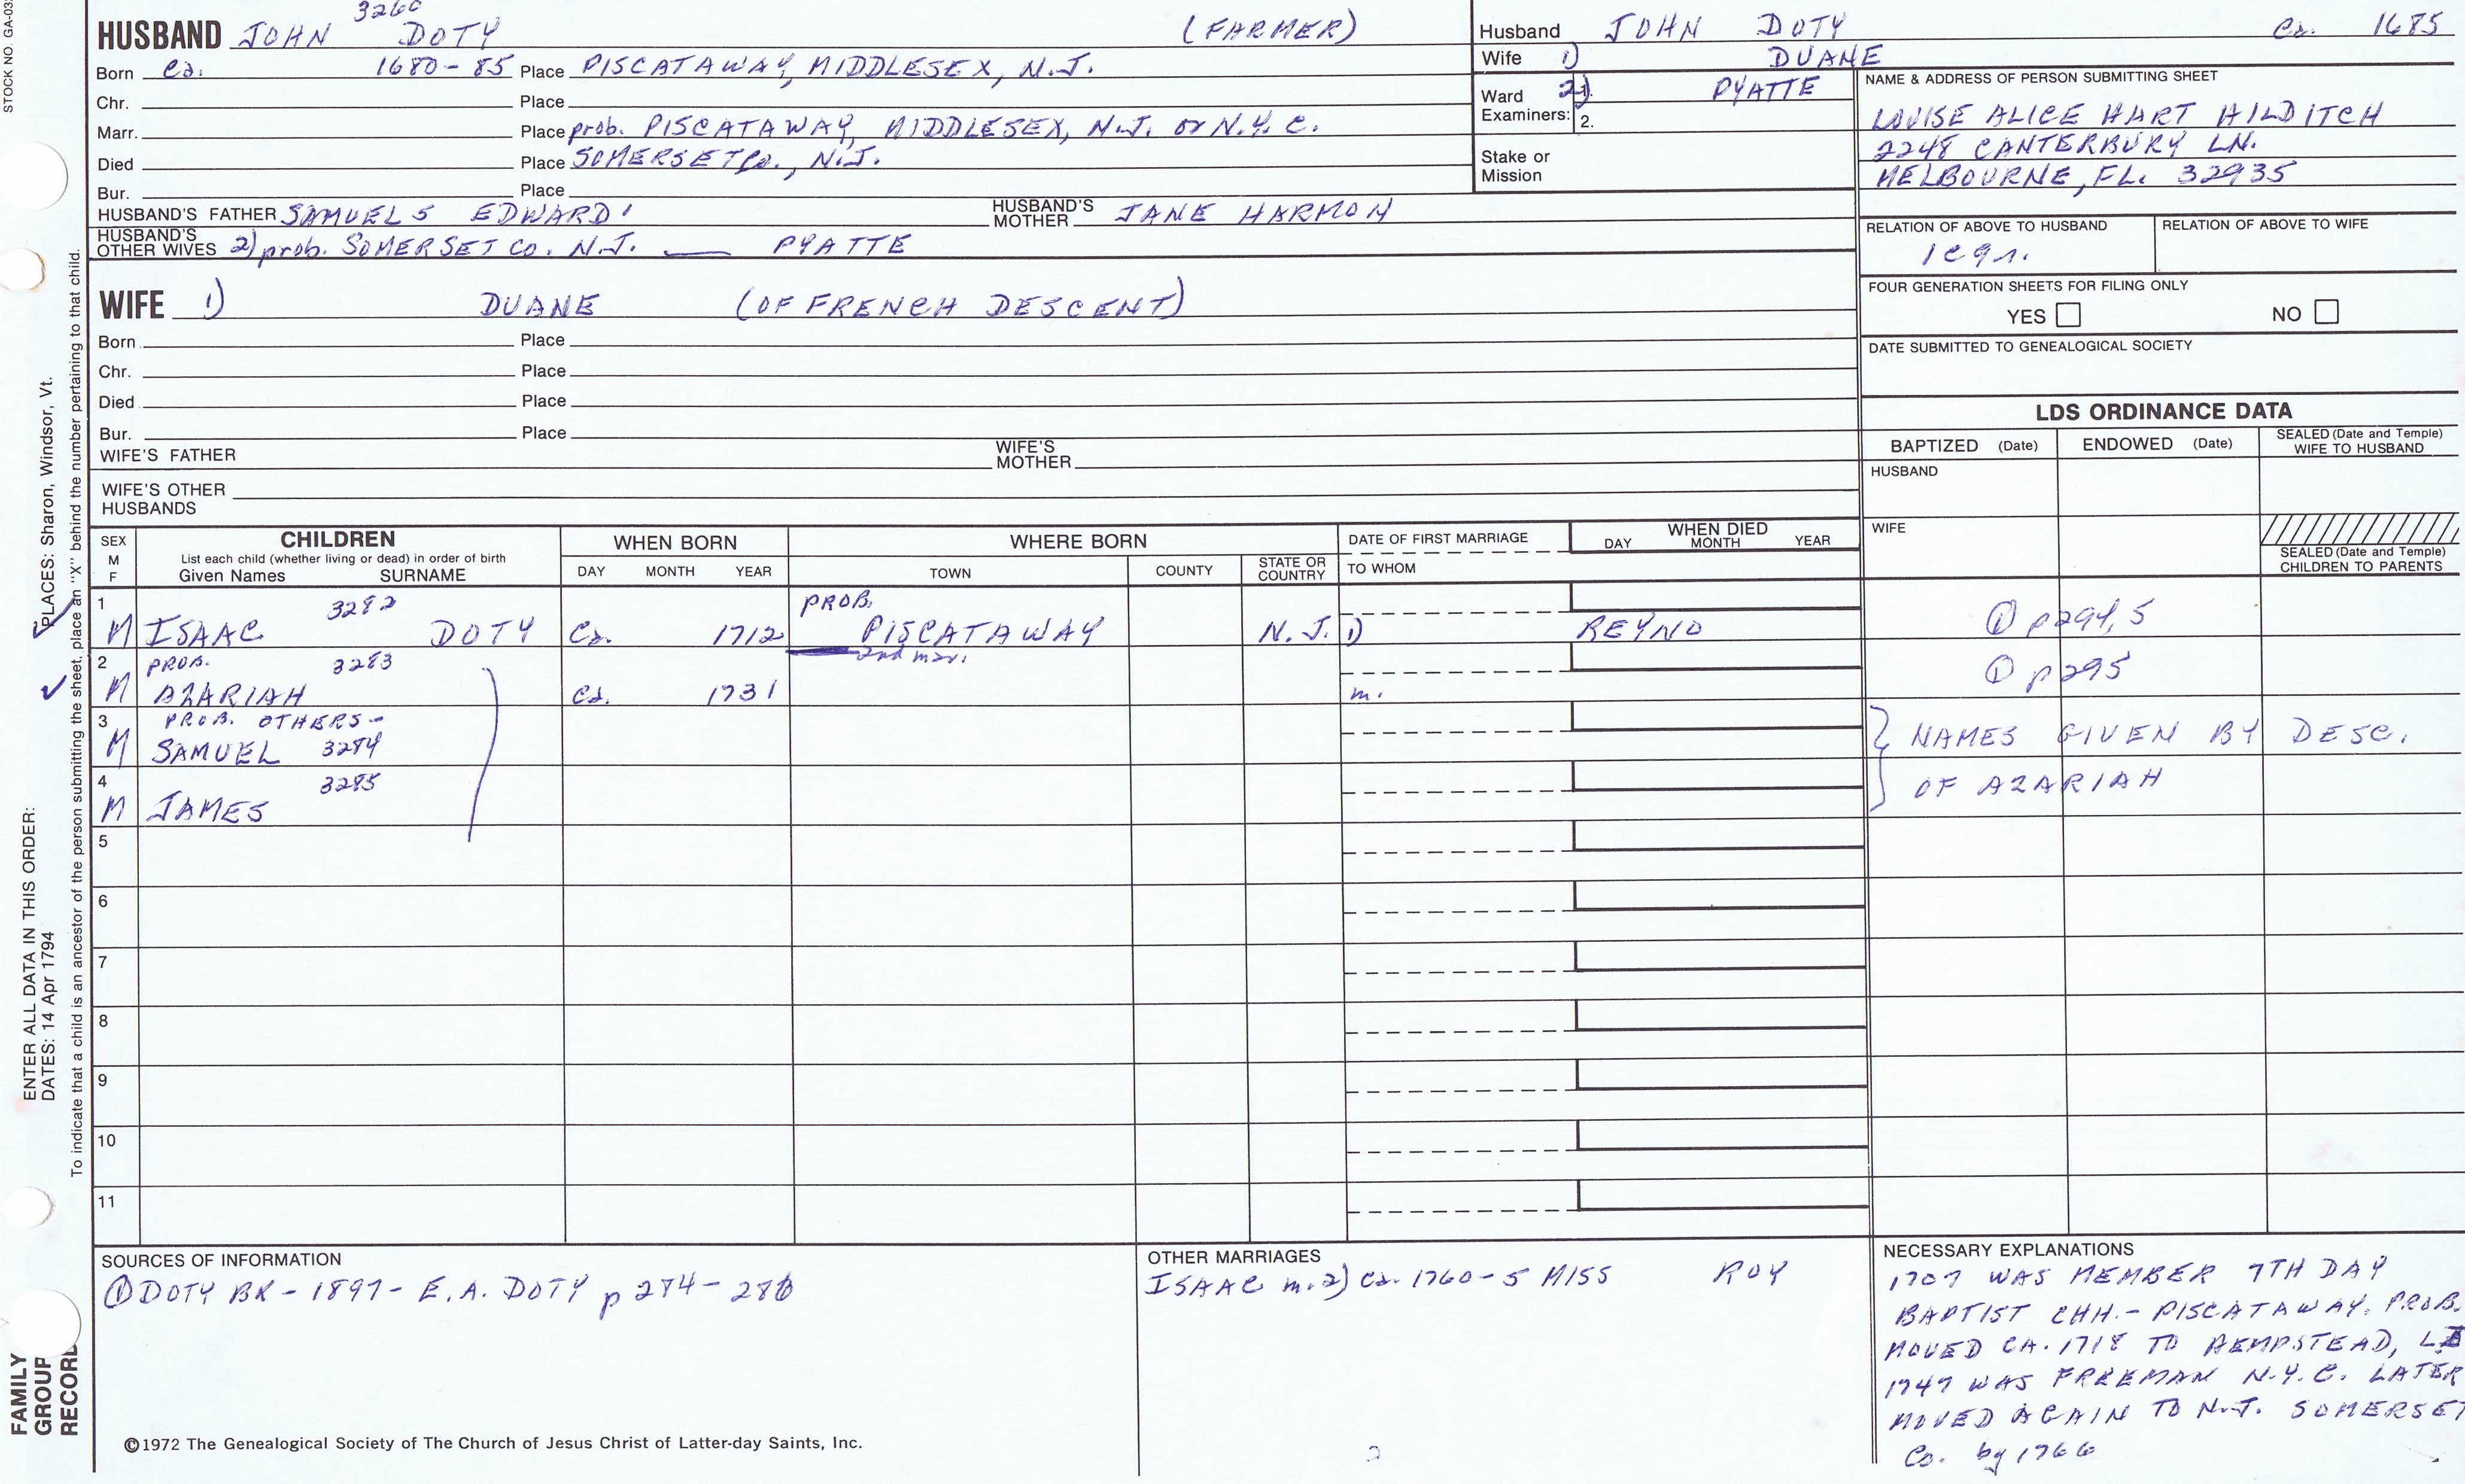 STOCK NO. GA-03
3260
HUSBAND JOHN DOTY (FARMER)
Born Ca. 1680-85 Place PISCATAWAY, MIDDLESEX, N.J.
Chr. Place
Marr. Place prob. PISCATAWAY, MIDDLESEX, N.J. or N.Y.C.
Died Place SOMERSET Co., N.J.
Bur. Place
HUSBAND'S FATHER SAMUEL 5 EDWARD 1 HUSBAND'S MOTHER JANE HARMON
HUSBAND'S OTHER WIVES 2) prob. SOMERSET CO. N.J. PYATTE
Husband JOHN DOTY Ca. 1685
Wife 1) DUANE
Ward Examiners: 1. 2) PYATTE
2.
Stake or Mission
NAME & ADDRESS OF PERSON SUBMITTING SHEET
LOUISE ALICE HART HILDITCH
2248 CANTERBURY LN.
MELBOURNE, FL. 32935
RELATION OF ABOVE TO HUSBAND RELATION OF ABOVE TO WIFE
FOUR GENERATION SHEETS FOR FILING ONLY
YES NO
DATE SUBMITTED TO GENEALOGICAL SOCIETY
WIFE 1) DUANE (OF FRENCH DESCENT)
Born Place
Chr. Place
Died Place
Bur. Place
WIFE'S FATHER WIFE'S MOTHER
WIFE'S OTHER HUSBANDS
LDS ORDINANCE DATA
BAPTIZED (Date) ENDOWED (Date) SEALED (Date and Temple) WIFE TO HUSBAND
HUSBAND
WIFE
SEALED (Date and Temple) CHILDREN TO PARENTS
SEX M F
CHILDREN
List each child (whether living or dead) in order of birth
Given Names SURNAME
WHEN BORN
DAY MONTH YEAR
WHERE BORN
TOWN COUNTY STATE OR COUNTRY
DATE OF FIRST MARRIAGE
TO WHOM
WHEN DIED
DAY MONTH YEAR
1 3282 PROB.
M ISAAC DOTY Ca. 1712 PISCATAWAY N.J. 1) REYNO ① p294,5
2 PROB. 3283 2nd mar.
M AZARIAH Ca. 1731 m. ① p295
3 PROB. OTHERS-
M SAMUEL 3284 NAMES GIVEN BY DESC.
4 3285
M JAMES OF AZARIAH
5
6
7
8
9
10
11
SOURCES OF INFORMATION
① DOTY BK - 1897 - E.A. DOTY p 284-286
OTHER MARRIAGES
ISAAC m. 2) Ca. 1760-5 MISS ROY
NECESSARY EXPLANATIONS
1707 WAS MEMBER 7TH DAY
BAPTIST CHH.- PISCATAWAY. PROB.
MOVED CA. 1718 TO HEMPSTEAD, LI
1747 WAS FREEMAN N.Y.C. LATER
MOVED AGAIN TO N.J. SOMERSET
Co. by 1766
©1972 The Genealogical Society of The Church of Jesus Christ of Latter-day Saints, Inc.
2
ENTER ALL DATA IN THIS ORDER:
DATES: 14 Apr 1794
PLACES: Sharon, Windsor, Vt.
To indicate that a child is an ancestor of the person submitting the sheet, place an "X" behind the number pertaining to that child.
FAMILY
GROUP
RECORD